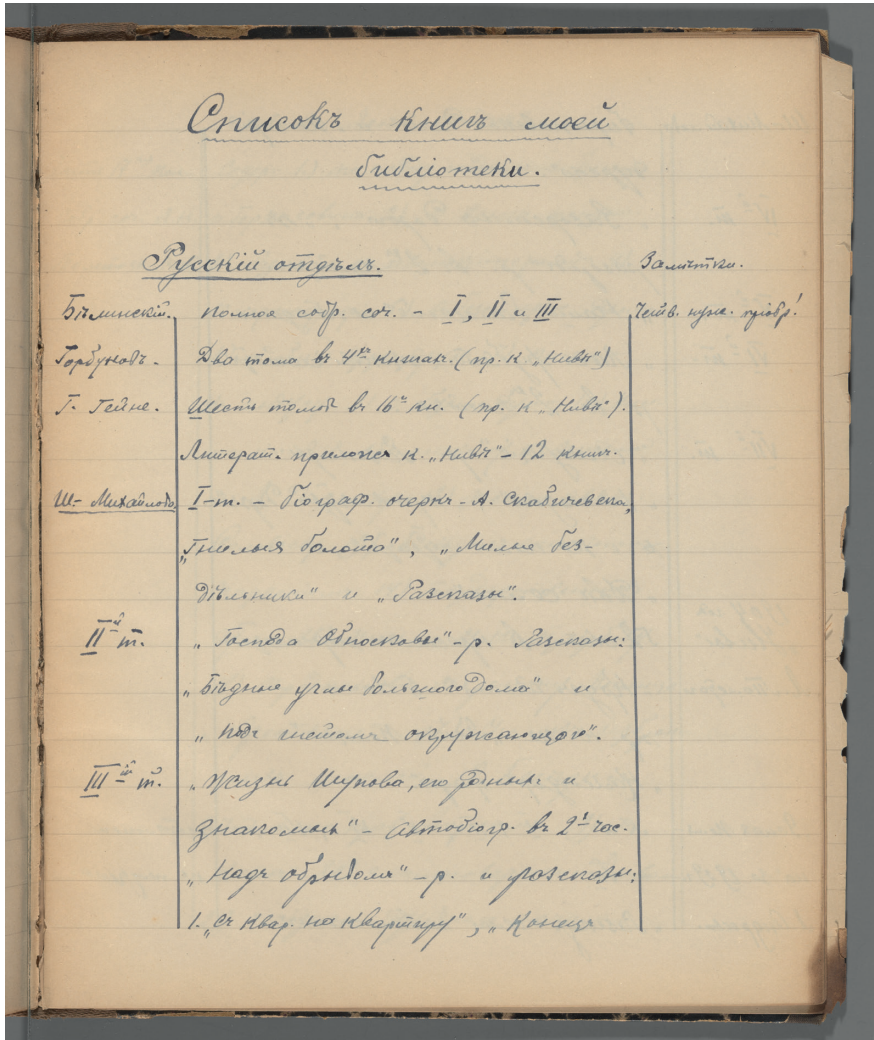 Списокъ книгъ моей
библіотеки.
Русскій отдѣлъ.
Замѣтки.
Бѣлинскій. Полное собр. соч. - I, II и III Четв. нуж. пріобр!
Горбуновъ. Два тома въ 4хъ книгах. (пр. к „Нивѣ")
Г. Гейне. Шесть томов въ 16и кн. (пр. к „Нивѣ").
Литерат. прилож к. „Нивѣ" - 12 книг.
Ш.- Михайловъ. I-т. - біограф. очеркъ - А. Скабичевска,
„Гнилыя болота", „Милые без-
дѣльники" и „Разсказы".
IIй т. „Господа Обносковы" - р. Разсказы:
„Бѣдные углы большого дома" и
„Подъ гнетомъ окружающаго".
IIIй т. „Жизнь Шупова, его родныхъ и
знакомыхъ" - Автобіогр. въ 2х час.
„Надъ обрывомъ" - р. и разсказы:
1. „Съ квар. на квартиру", „Конецъ